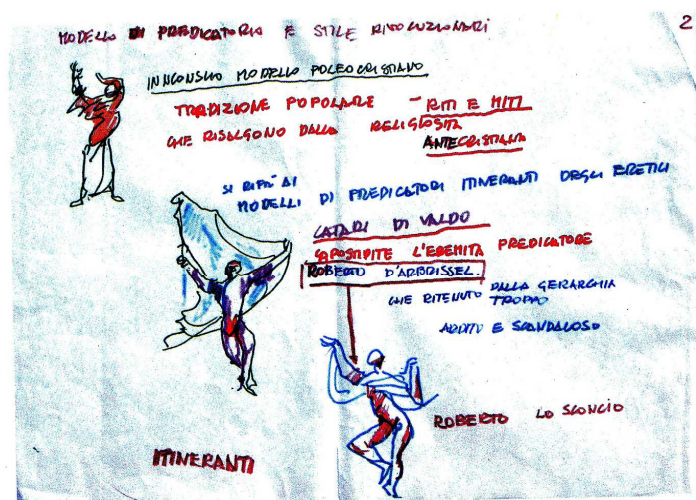 2
MODELLO DI PREDICATORIO E STILE RIVOLUZIONARI
INNCONSUIO MODELLO POLEOCRISTIANO
TRADIZIONE POPOLARE - RITI E MITI
CHE RISALGONO DALLA RELIGIOSITA
ANTECRISTIANA
SI RIFÀ AI
MODELLI DI PREDICATORI ITINERANTI DEGLI ERETICI
CATARI DI VALDO
CAPOSTIPITE L'EREMITA PREDICATORE
ROBERTO D'ARBRISSEL.
CHE RITENUTO DALLA GERARCHIA
TROPPO
ARDITO E SCANDALOSO
ROBERTO LO SCONCIO
ITINERANTI